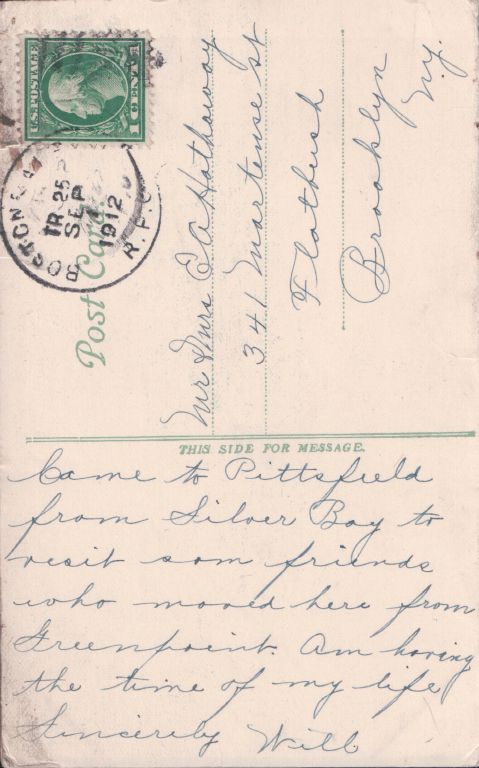 U.S. POSTAGE
1 CENT 1
BOSTON &
R.P.O.
TR 25
SEP
1912
Post Card.
Mr & Mrs E A Hathaway
341 Martense st
Flatbush
Brooklyn
N.Y.
THIS SIDE FOR MESSAGE.
Came to Pittsfield
from Silver Bay to
visit som friends
who moved here from
Greenpoint. Am having
the time of my life
Sincerely Will